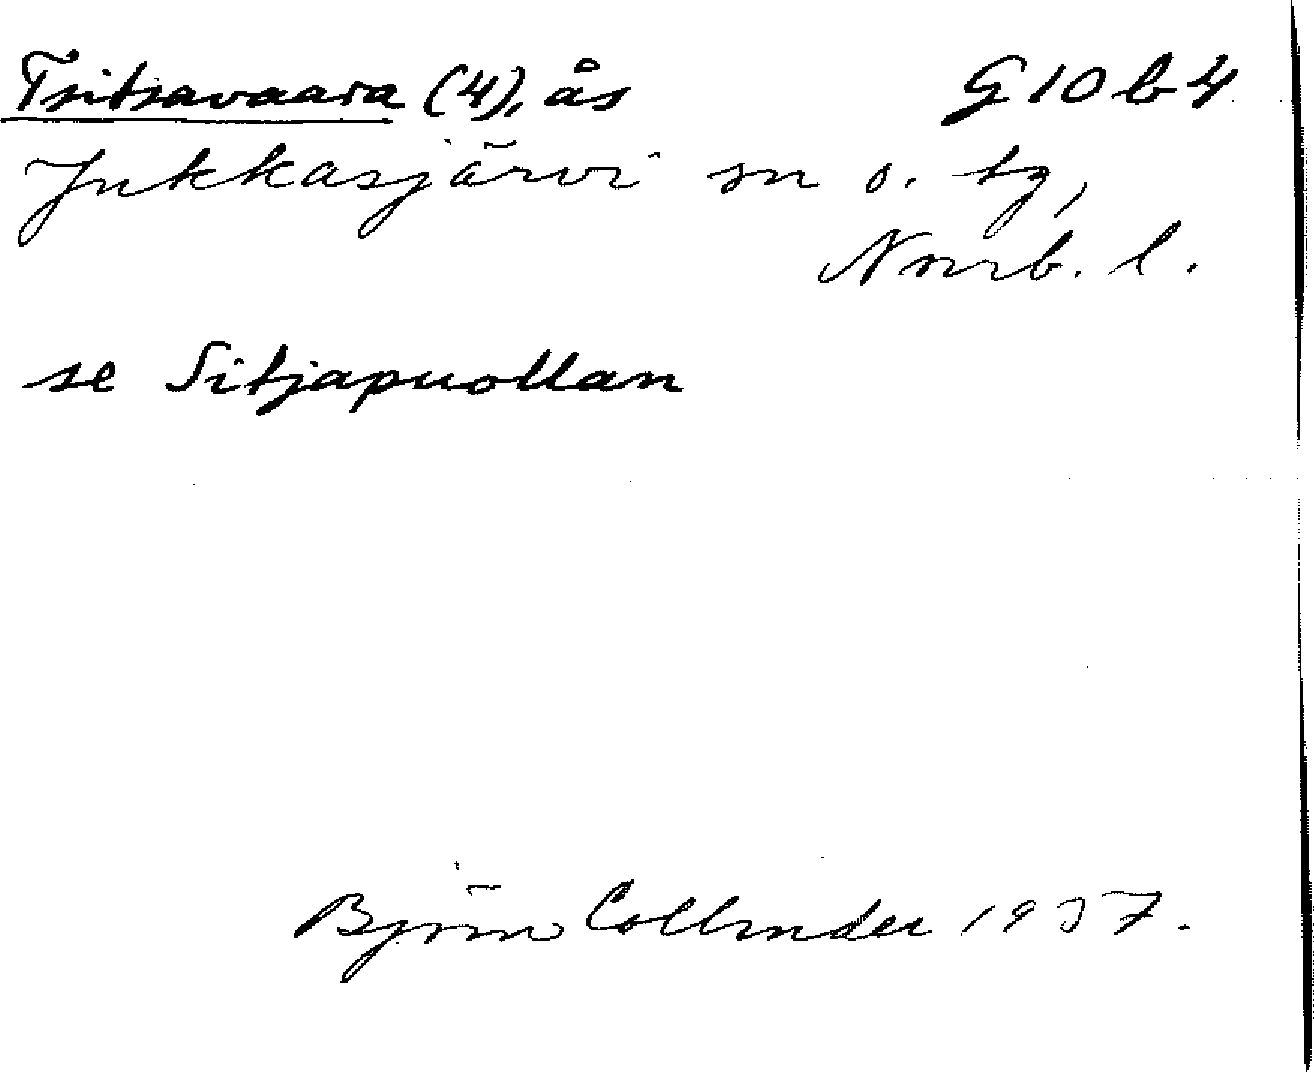 Tsitsavaara (4), ås G 10 b 4
Jukkasjärvi sn o. tg,
Norrb. l.
se Sitjapuollan
Björn Collinder 1957.